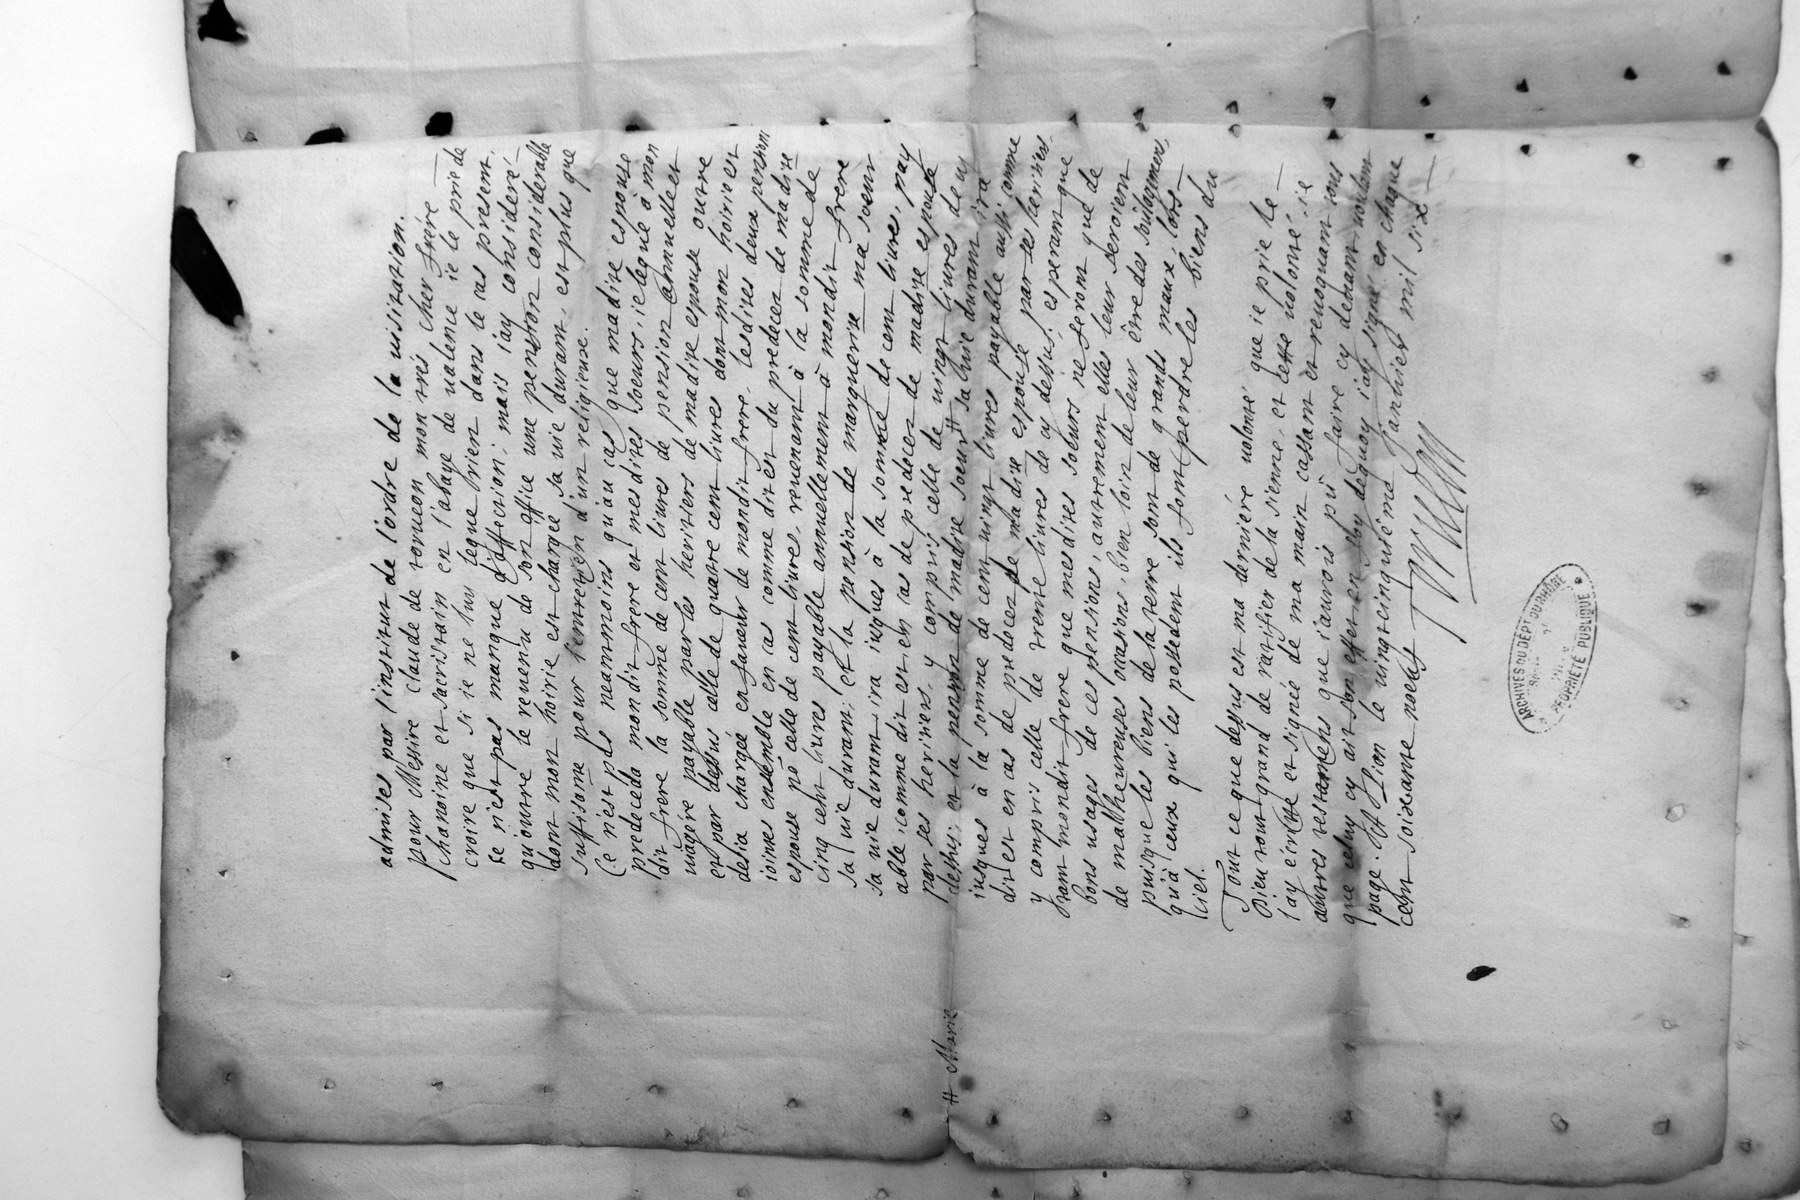 admises par l'institut de l'ordre de la uisitation.
pour Messire claude de torueon mon tres cher frere
chanoine et sacristain en l'abaye de ualence ie le prie de
croire que si ie ne luy legue rien dans le cas present,
ce n'est pas manque d'affection; mais i'ay consideré
qu'outre le reuenu de son office une pension considerable
dont mon hoirie est chargée sa uie durant, est plus que
suffisante pour l'entretien d'un religieuse.
Ce n'est pas neantmoins qu'au cas que madite espouse
predeceda mondit frere et mesdites soeurs, ie legue à mon
dit frere la somme de cent liures de pension annuelle et
uiagére payable par les heritiers de madite espouse outre
et par dessus celle de quatre cent liures dont mon hoirie est
desia chargée en faueur de mondit frere, lesdites deux pension
iointes ensemble en cas comme dit est du predecez de madite
espouse nō celle de cent liures, reuenant à la somme de
cinq cent liures payable annuellement à mondit frere
sa uie durant; et la pension de marguerite ma soeur
sa uie durant ira iusques à la somme de cent liures, pay
able, comme dit est en cas de predecez de madite espouse
par ses heritiers, y compris celle de uingt liures de cy
dessus; et la pension de madite soeur # sa uie durant ira
iusques à la somme de cent uingt liures payable aussi comme
dit est en cas de predecez de madite espouse par ses heritiers
y compris celle de trente liures de cy dessus; esperant que
tant mondit frere que mesdites soeurs ne feront que de
bons usages de ces pensions, autrement elles leur seroient
de malheureuses ocasions, bien loin de leur être des soulagemens,
puisque les biens de la terre sont de grands maux, lors
qu'à ceux qui les possedent ils font perdre les biens du
Ciel.
Tout ce que dessus est ma derniere uolonté que ie prie le
Dieu tout grand de ratifier de la sienne, et cette uolonté, ie
l'ay écritte et signée de ma main cassant et reuoquant tous
autres testamens que i'aurois pû faire cy deuant uoulant
que celuy cy ait son effet en foy dequoy i'ay signé en chaque
page. Fet à Lion le uingtcinquiême januier mil six
cent soixante noeuf
# Marie
ARCHIVES DU DÉPT DU RHÔNE
PROPRIÉTÉ PUBLIQUE